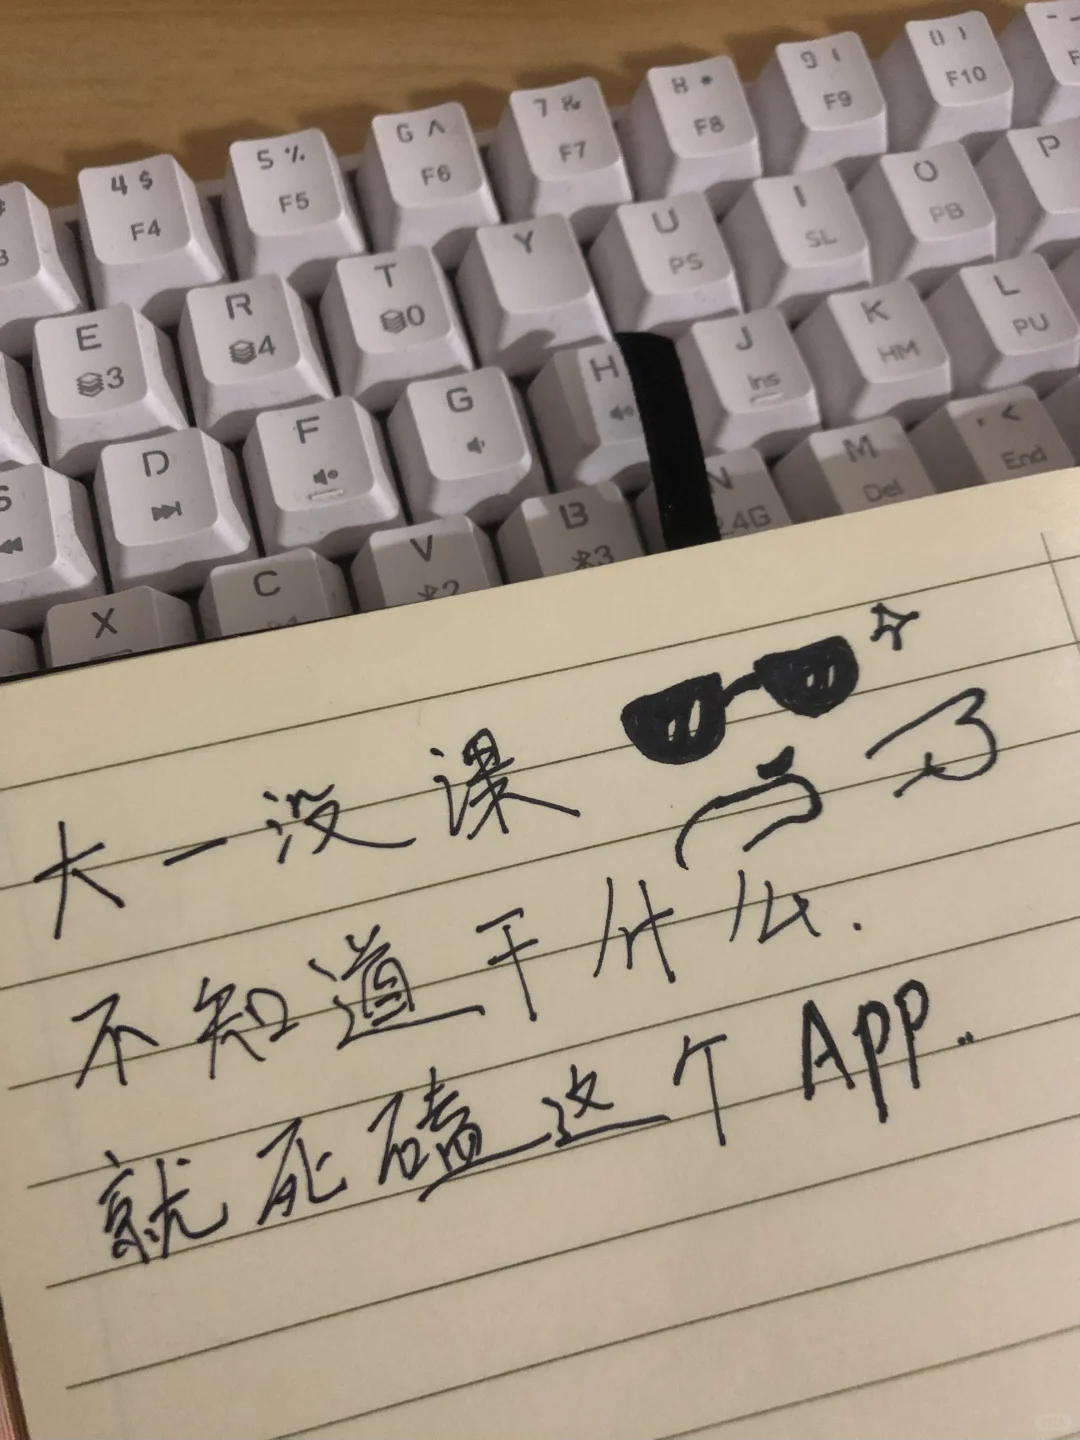 $ 3
4 $ F4
5 % F5
6 ^ F6
7 & F7
8 * F8
9 ( F9
0 ) F10
E 3
R 4
T 0
Y
U PS
I SL
O PB
P
S
D
F
G
H
J Ins
K HM
L PU
X
C
V 2
B 3
N 2.4G
M Del
, < End
大一没课
不知道干什么.
就死磕这个App..